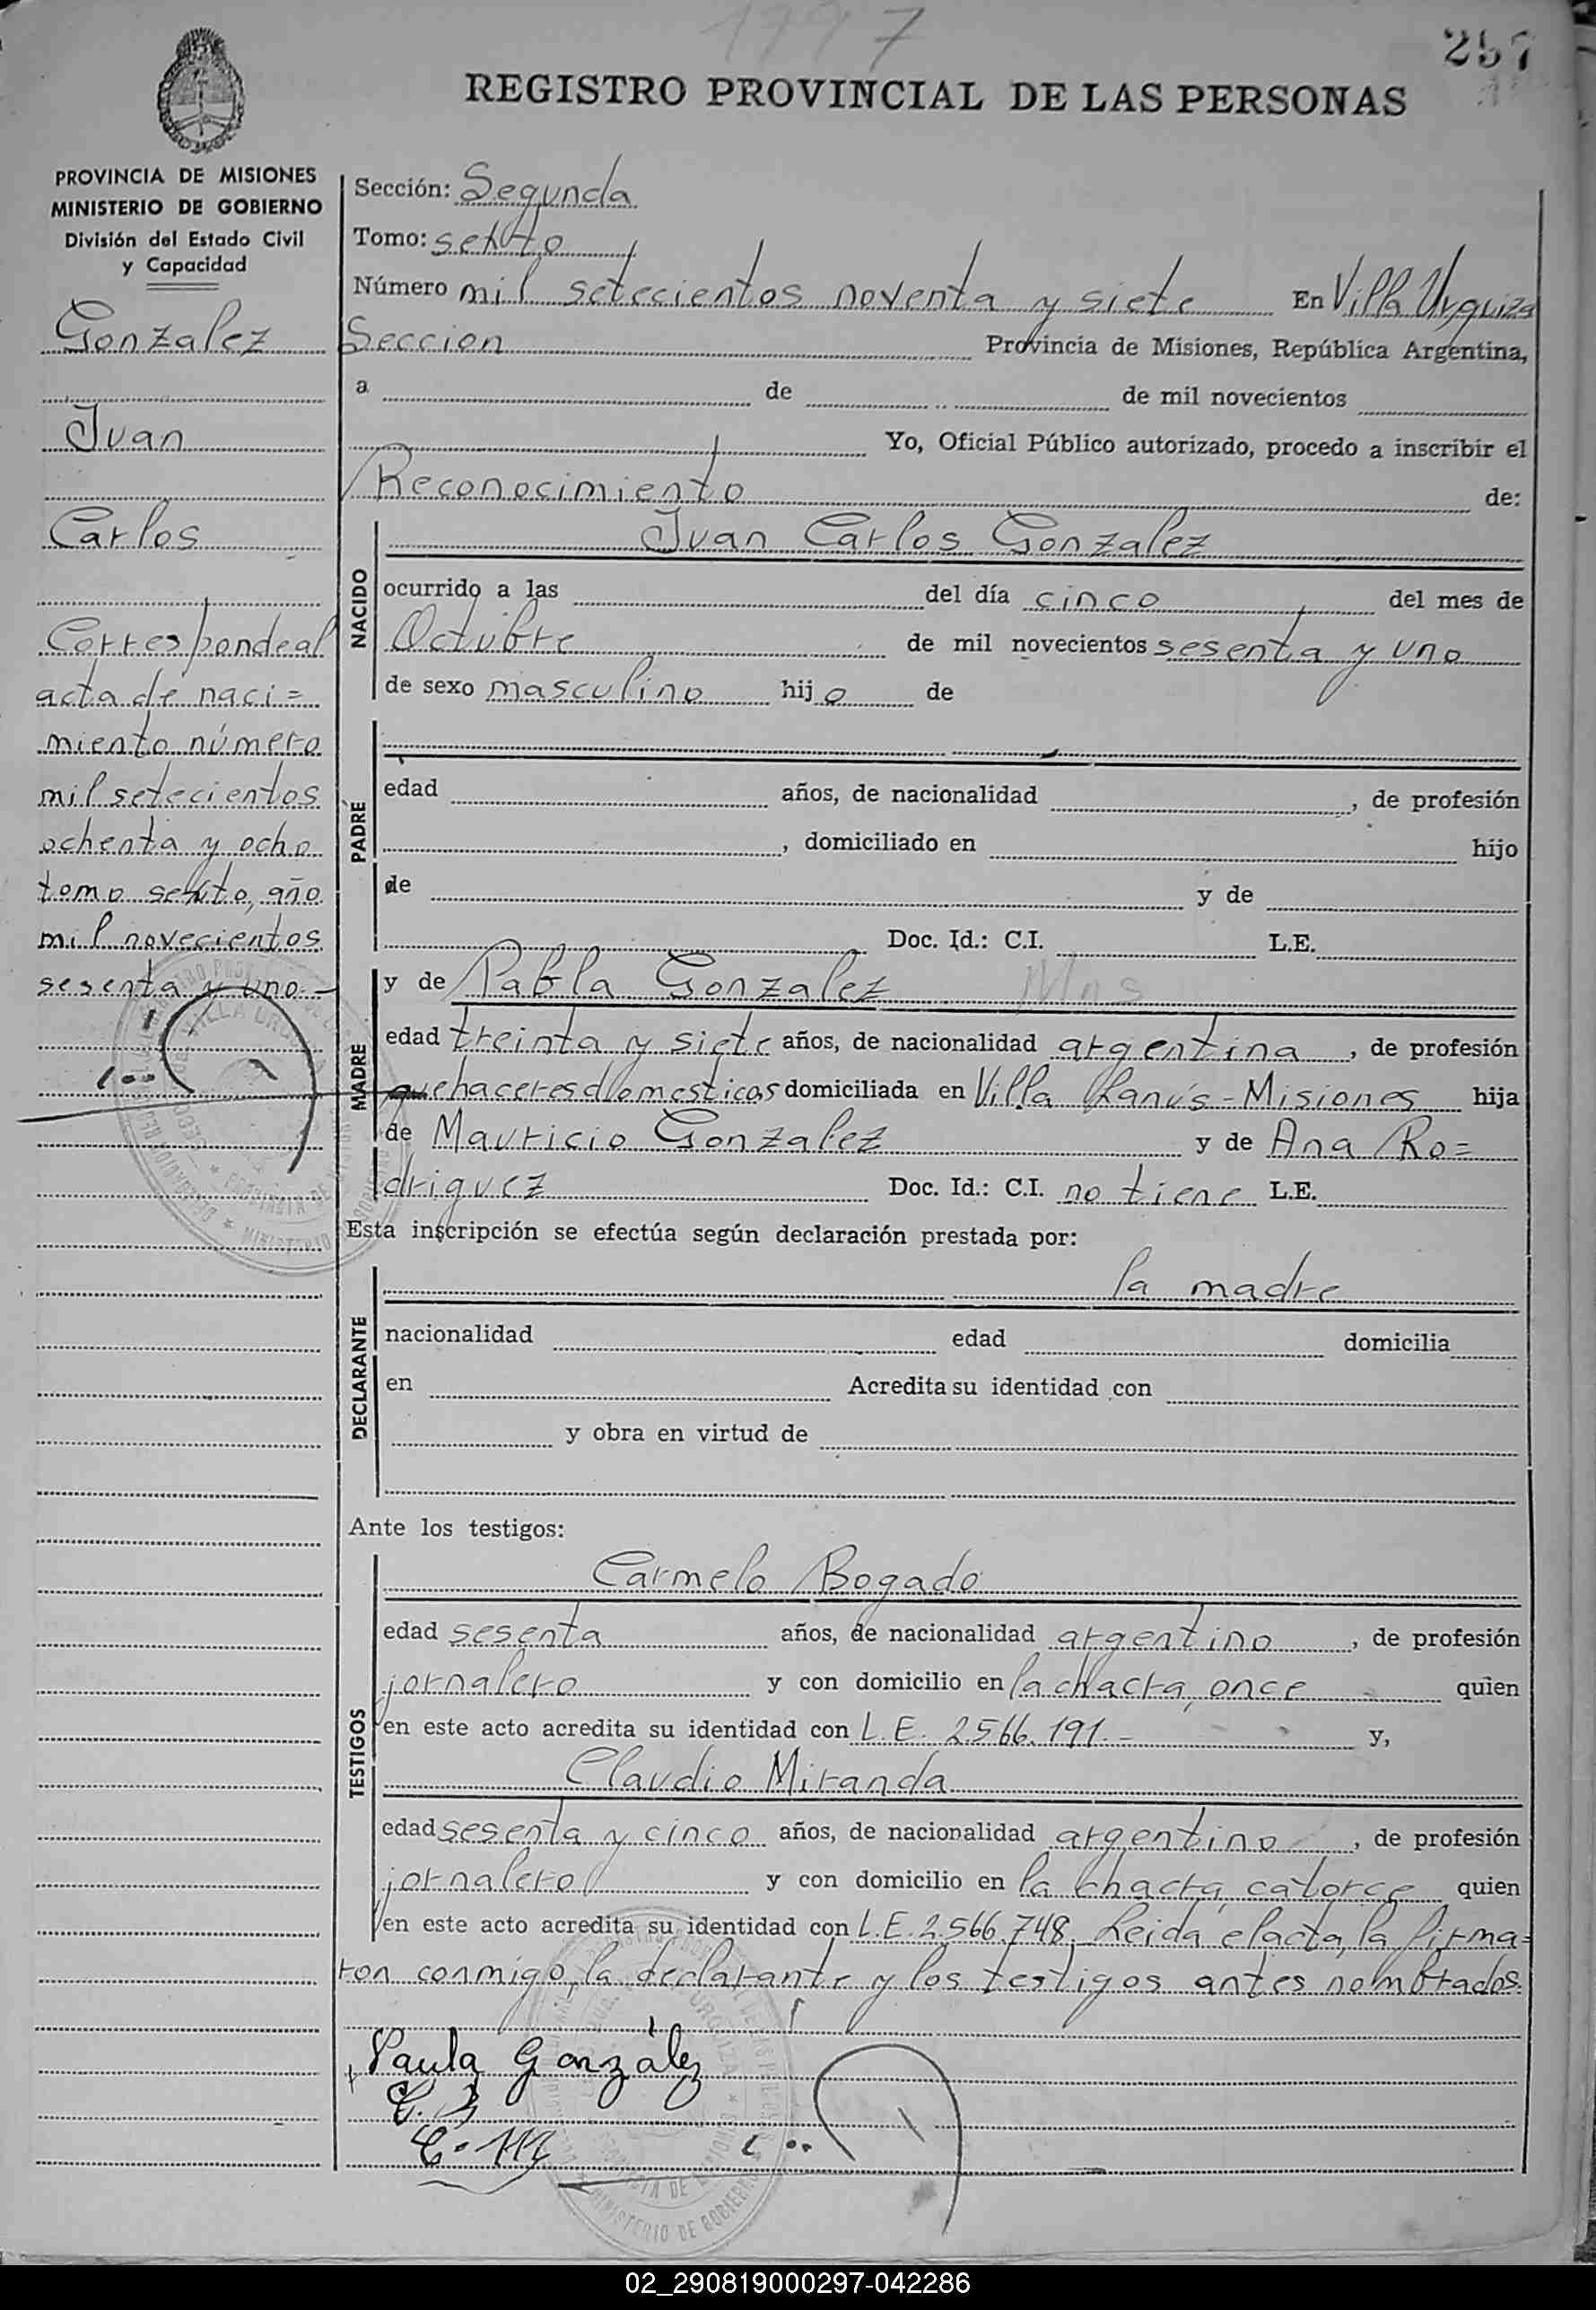 1797
257
REGISTRO PROVINCIAL DE LAS PERSONAS
PROVINCIA DE MISIONES
MINISTERIO DE GOBIERNO
División del Estado Civil
y Capacidad
Gonzalez
Juan
Carlos
Corresponde al
acta de naci=
miento número
mil setecientos
ochenta y ocho
tomo sexto, año
mil novecientos
sesenta y uno-
Sección: Segunda
Tomo: sexto
Número mil setecientos noventa y siete En Villa Urquiza
Seccion Provincia de Misiones, República Argentina,
a de de mil novecientos
Yo, Oficial Público autorizado, procedo a inscribir el
Reconocimiento de:
NACIDO
Juan Carlos Gonzalez
ocurrido a las del día cinco del mes de
Octubre de mil novecientos sesenta y uno
de sexo masculino hijo de
PADRE
edad años, de nacionalidad , de profesión
, domiciliado en hijo
de y de
Doc. Id.: C.I. L.E.
MADRE
y de Pabla Gonzalez Mns
edad treinta y siete años, de nacionalidad argentina, de profesión
quehaceres domesticos domiciliada en Villa Lanús-Misiones hija
de Mauricio Gonzalez y de Ana Ro=
driguez Doc. Id.: C.I. no tiene L.E.
Esta inscripción se efectúa según declaración prestada por:
DECLARANTE
la madre
nacionalidad edad domicilia
en Acredita su identidad con
y obra en virtud de
Ante los testigos:
TESTIGOS
Carmelo Bogado
edad sesenta años, de nacionalidad argentino, de profesión
jornalero y con domicilio en la chacra once quien
en este acto acredita su identidad con L.E. 2.566.191.- y,
Claudio Miranda
edad sesenta y cinco años, de nacionalidad argentino, de profesión
jornalero y con domicilio en la chacra catorce quien
en este acto acredita su identidad con L.E. 2.566.748. Leida el acta, la firma=
ron conmigo, la declarante y los testigos antes nombrados.
Paula González
C. B
C. M
02_290819000297-042286